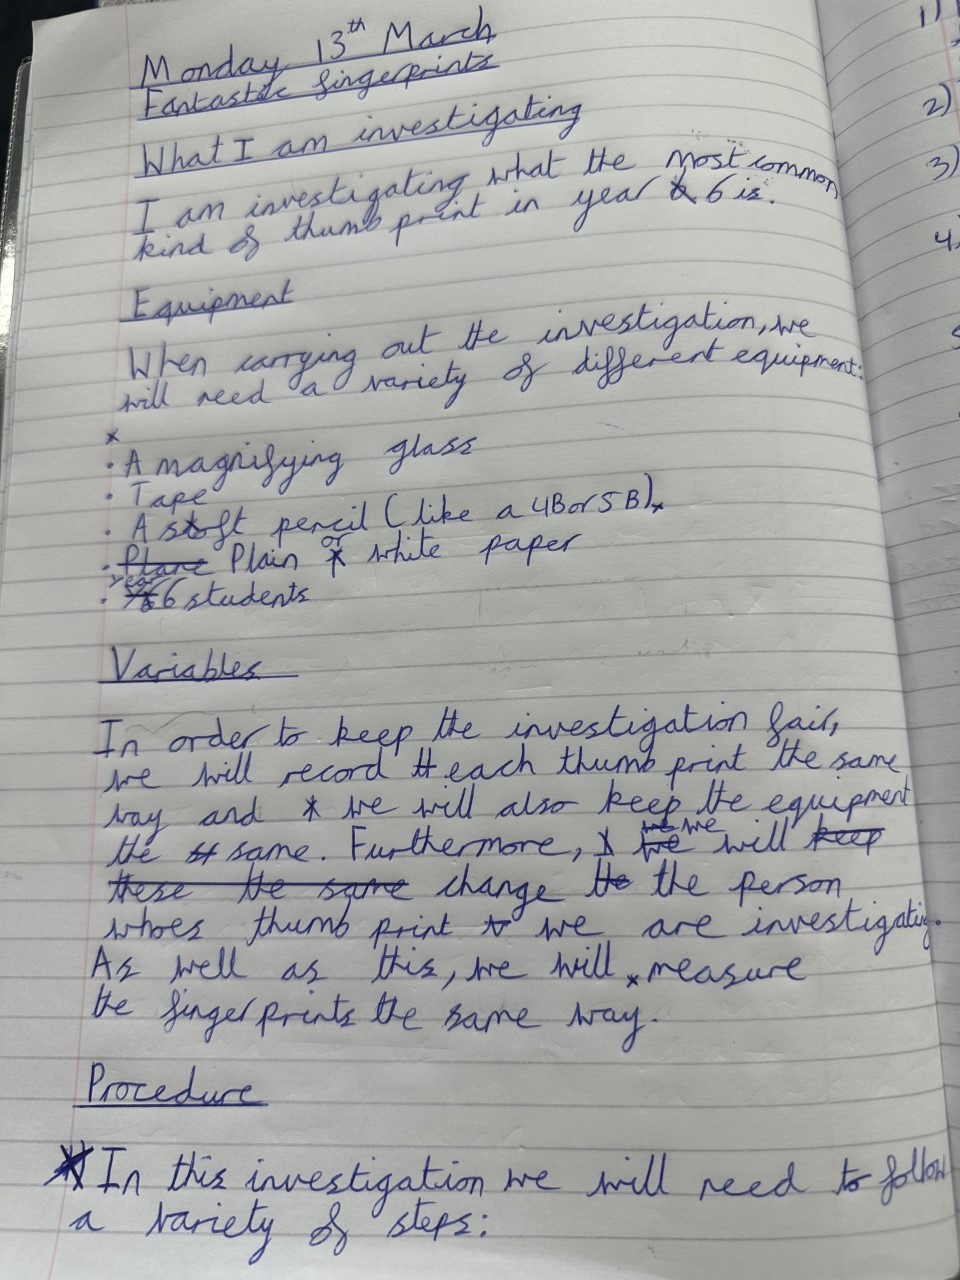 Monday 13th March
Fantastic fingerprints
What I am investigating
I am investigating what the most common
kind of thumb print in year 6 is.
Equipment
When carrying out the investigation, we
will need a variety of different equipment:
• A magnifying glass
• Tape
• A soft pencil (like a 4B or 5B)
• Plane Plain or white paper
• year 6 students
Variables
In order to keep the investigation fair,
we will record each thumb print the same
way and we will also keep the equipment
the same. Furthermore, we will keep
these the same change the the person
whoes thumb print we are investigating.
As well as this, we will measure
the fingerprints the same way.
Procedure
In this investigation we will need to follow
a variety of steps:
1)
2)
3)
4.